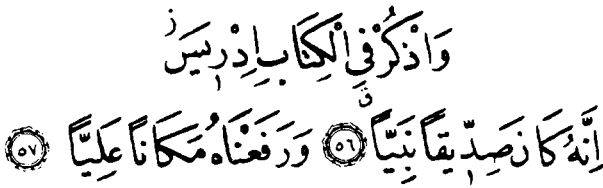 وَاذْكُرْ فِي الْكِتَابِ اِدْرٖيسَؗ
اِنَّهُ كَانَ صِدّٖيقاً نَبِياًّۗ ﴿٥٦﴾ وَرَفَعْنَاهُ مَكَاناً عَلِياًّ ﴿٥٧﴾